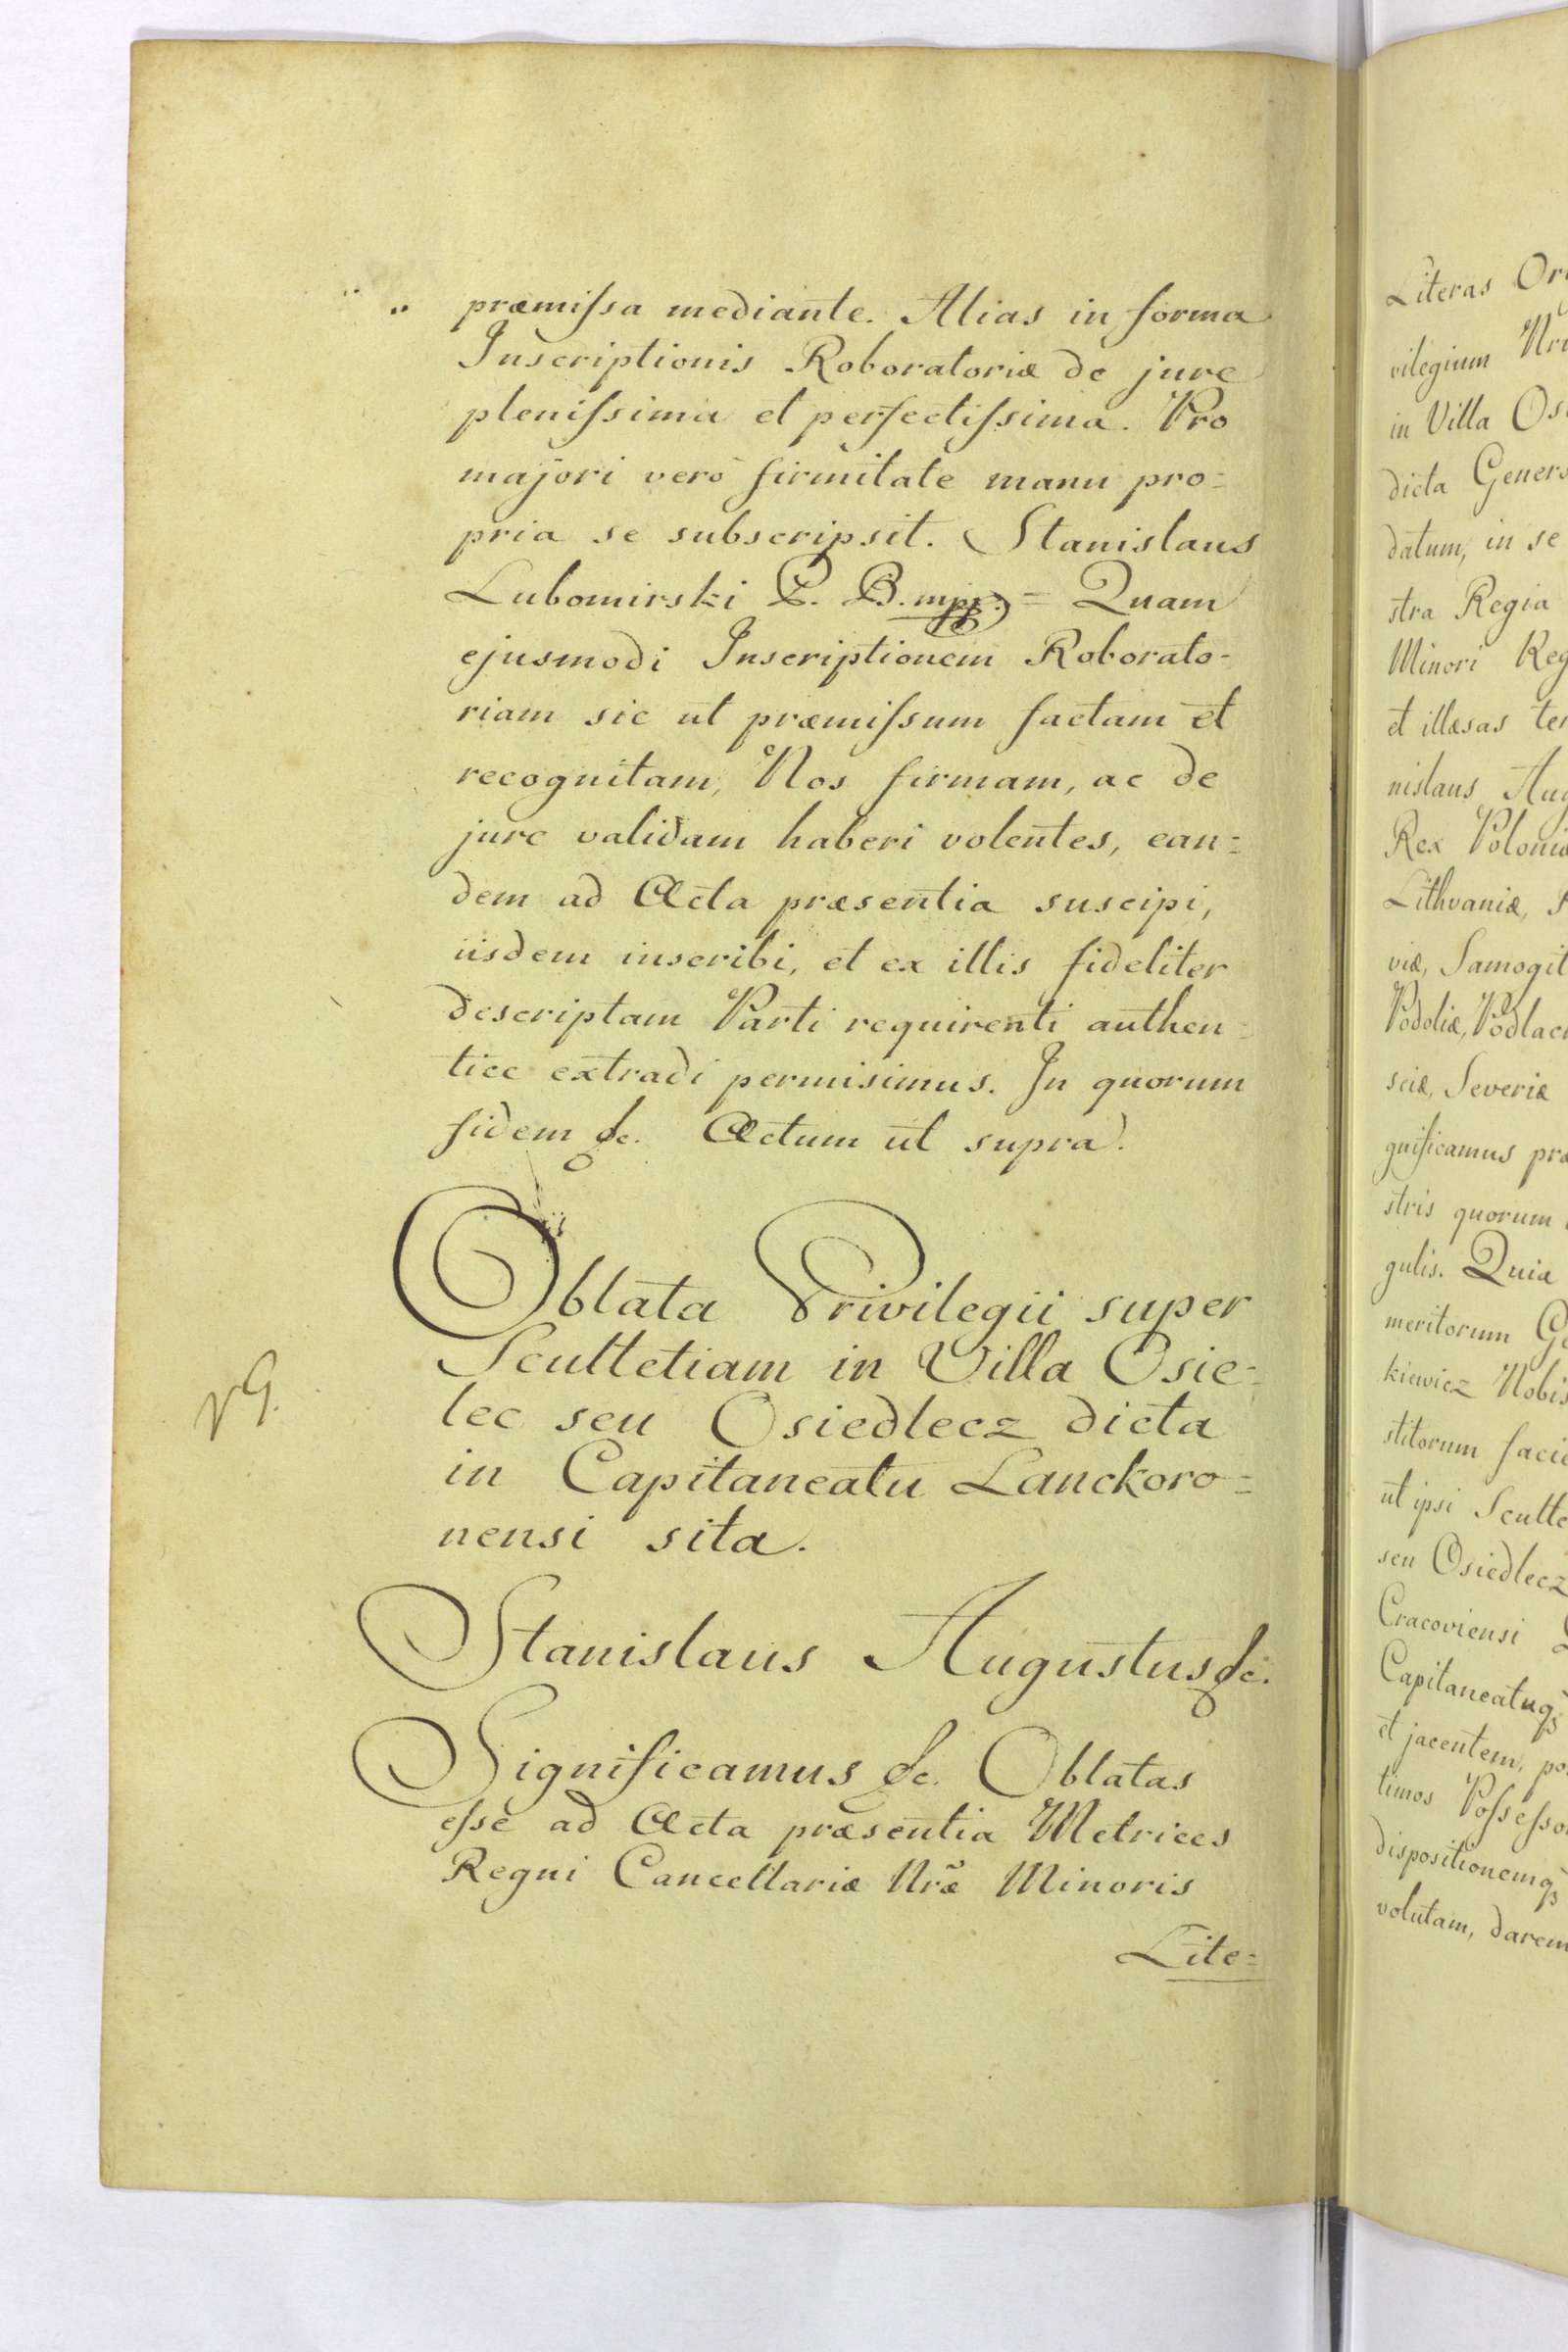 præmiſsa mediante. Alias in forma
Inscriptionis Roboratoriæ de jure
pleniſsima et perfectiſsima. Pro
majori vero firmitate manu pro=
pria se subscripsit. Stanislaus
Lubomirski P. B. mpp. = Quam
ejusmodi Inscriptionem Roborato-
riam sic ut præmiſsum factam et
recognitam, Nos firmam, ac de
jure validam haberi volentes, ean=
dem ad Acta præsentia suscipi,
iisdem inscribi, et ex illis fideliter
descriptam Parti requirenti authen=
tice extradi permisimus. In quorum
fidem &c. Actum ut supra.
Oblata Privilegii super
Scultetiam in Villa Osie=
lec seu Osiedlecz dicta
in Capitaneatu Lanckoro=
nensi sita.
Stanislaus Augustus &c.
Significamus &c. Oblatas
eſse ad Acta præsentia Metrices
Regni Cancellariæ Nræ Minoris
Lite=
Literas
vilegium
in Villa
dicta
datum, in se
stra Regia
Minori
et illæsas
nislaus
Rex
Lithvaniæ,
viæ,
Podoliæ,
sciæ, Severiæ
gnificamus
stris quorum
gulis. Quia
meritorum
kiewicz
stitorum
ut ipsi
seu Osiedlecz
Cracoviensi
Capitaneatuqȝ
et jacentem,
timos
dispositionemqȝ
volutam,